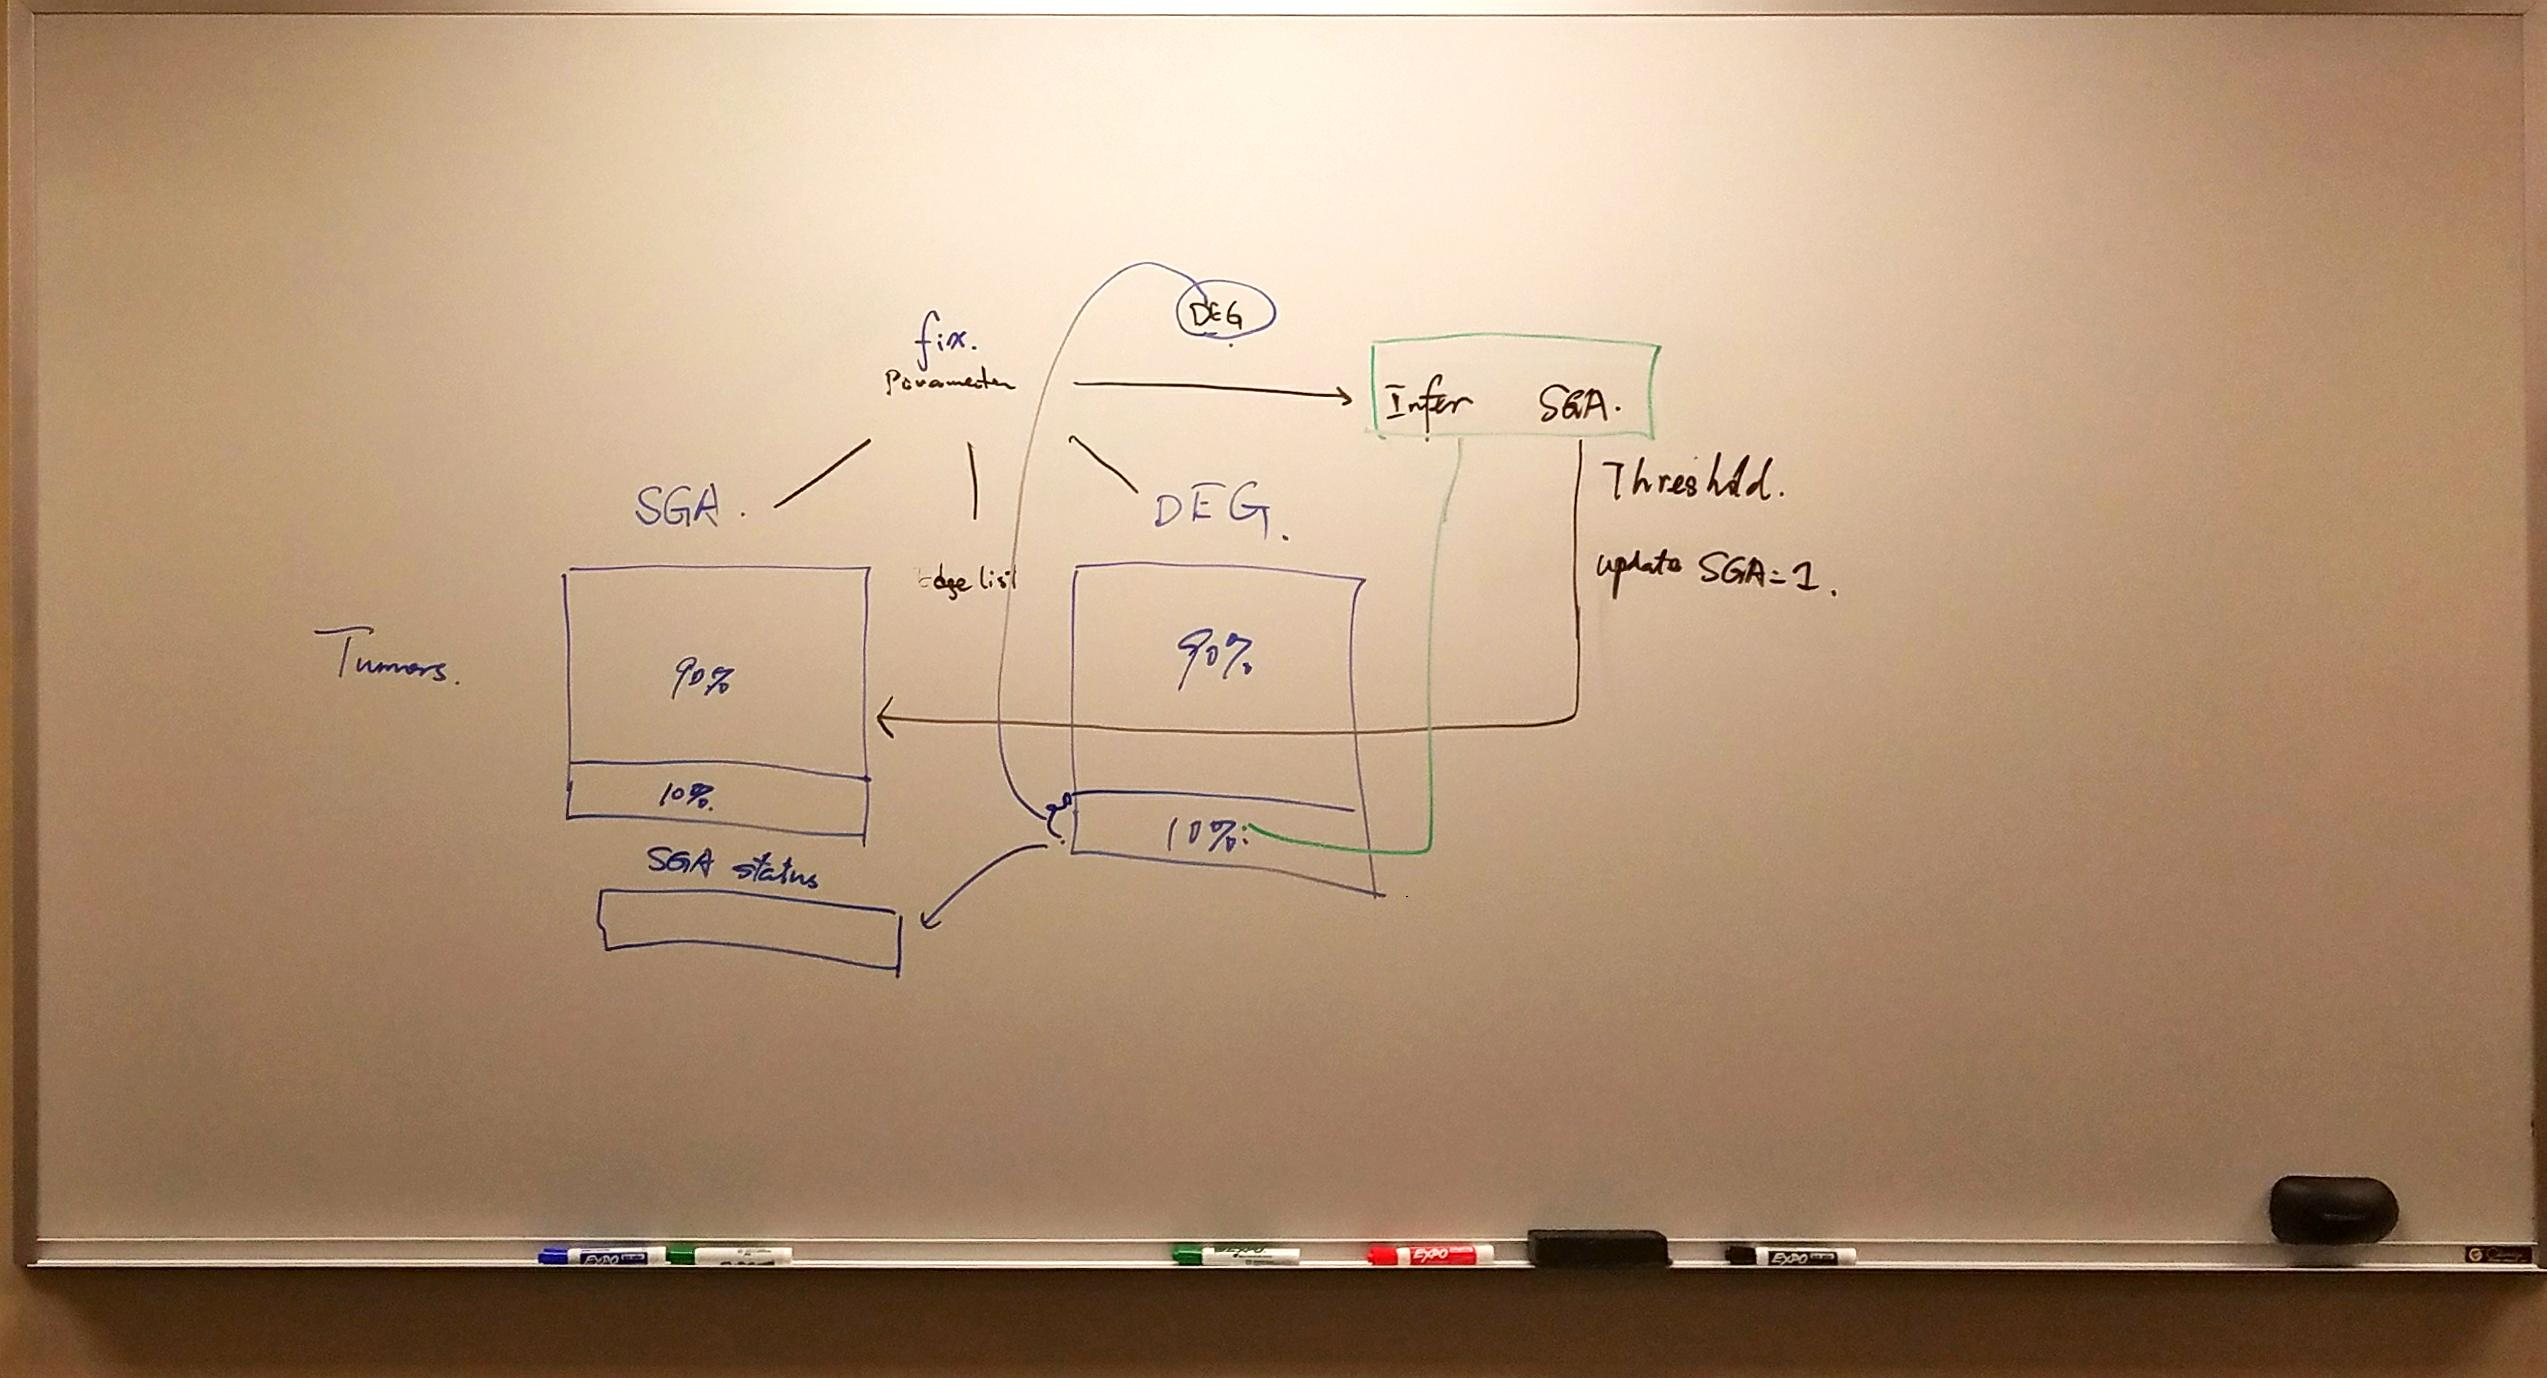 DEG
fix.
Parameter
Infer SGA.
Threshold.
update SGA=1.
SGA.
DEG.
Edge list
Tumors.
90%
90%
10%.
10%:
SGA status
EXPO
EXPO
EXPO
EXPO